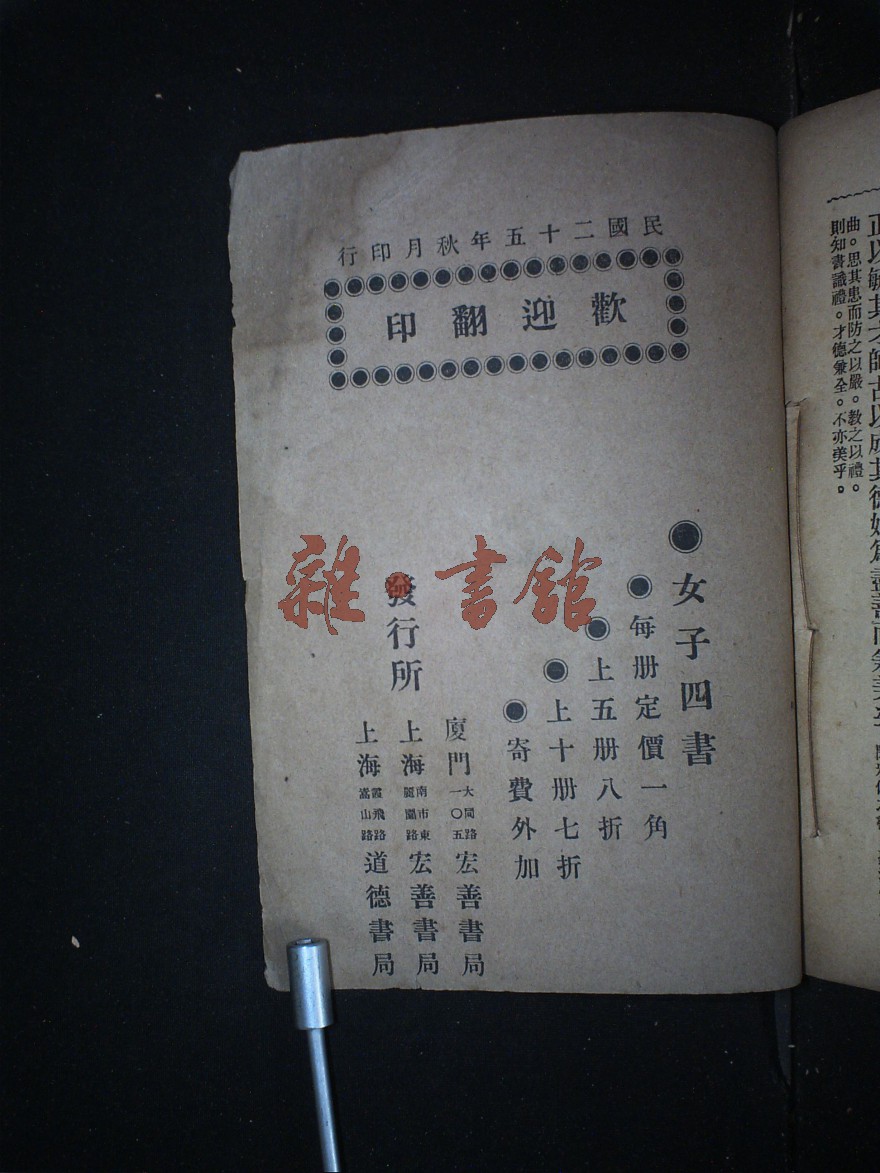 民國二十五年秋月印行
歡迎翻印
女子四書
每册定價一角
上五册八折
上十册七折
寄費外加
發行所
廈門大同路一〇五宏善書局
上海南市東宏善書局
上海霞飛路嵩山路道德書局
雜·書館
曲。思其患而防之以嚴。教之以禮。
則知書識禮。才德兼全。不亦美乎。